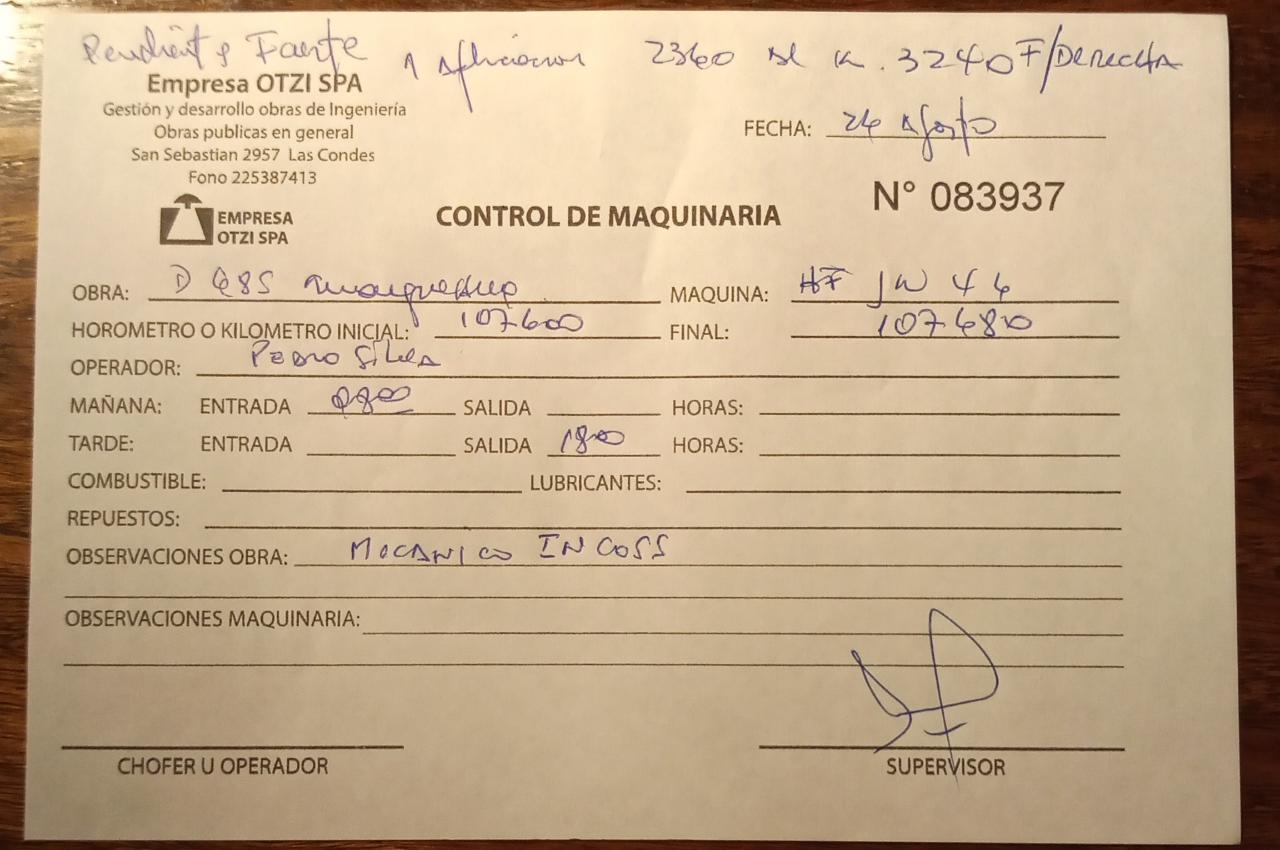 Fuerte 2360 al K. 3240 F/DERECHA
Empresa OTZI SPA
Gestión y desarrollo obras de Ingeniería
Obras publicas en general
San Sebastian 2957 Las Condes
Fono 225387413
FECHA: Agosto
N° 083937
EMPRESA
OTZI SPA
CONTROL DE MAQUINARIA
OBRA: D
MAQUINA: JW
HOROMETRO O KILOMETRO INICIAL: 107600 FINAL: 107680
OPERADOR: PEDRO SILVA
MAÑANA: ENTRADA 0800 SALIDA HORAS:
TARDE: ENTRADA SALIDA 1800 HORAS:
COMBUSTIBLE: LUBRICANTES:
REPUESTOS:
OBSERVACIONES OBRA: MECANICO
OBSERVACIONES MAQUINARIA:
CHOFER U OPERADOR SUPERVISOR